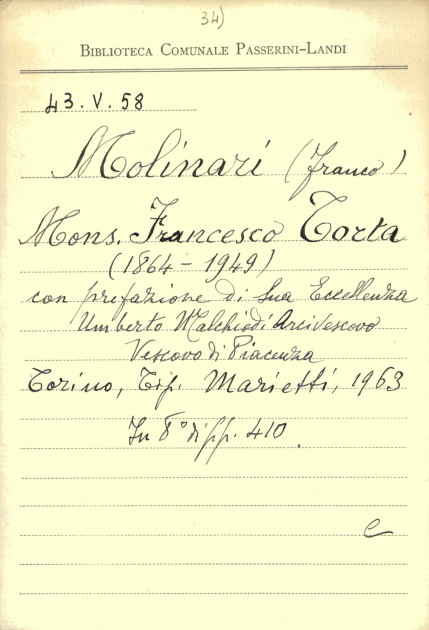 34)
BIBLIOTECA COMUNALE PASSERINI-LANDI
43.V.58
Molinari (Franco)
Mons. Francesco Torta
(1864-1949)
con prefazione di Sua Eccellenza
Umberto Malchiodi Arcivescovo
Vescovo di Piacenza
Torino, Tip. Marietti, 1963
In 8° di pp. 410.
e